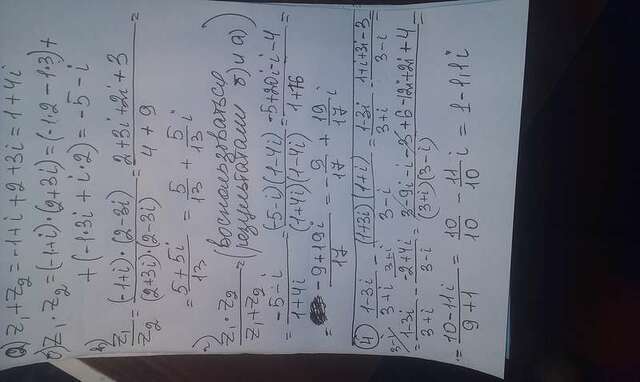 а) z₁+z₂=-1+i+2+3i=1+4i
б) z₁·z₂=(-1+i)·(2+3i)=(-1·2-1·3)+
+(-1·3i+i·2)=-5-i
в) z₁/z₂=((-1+i)·(2-3i))/((2+3i)·(2-3i))=(-2+3i+2i+3)/(4+9)=
=(5+5i)/13=5/13+5/13i
г) (z₁·z₂)/(z₁+z₂)=(воспользоваться результатами б) и а))
=(-5-i)/(1+4i)=((-5-i)(1-4i))/((1+4i)(1-4i))=(-5+20i-i-4)/(1+16)=
=(-9+19i)/17=-9/17+19/17i
④ (1-3i)/(3+i)-((1+3i)(1+i))/(3-i)=(1-3i)/(3+i)-(1+i+3i-3)/(3-i)=
=(1-3i)/(3+i)-(-2+4i)/(3-i)=(3-9i-i-3+6-12i+2i+4)/((3+i)(3-i))=
=(10-11i)/(9+1)=10/10-11/10i=1-1,1i